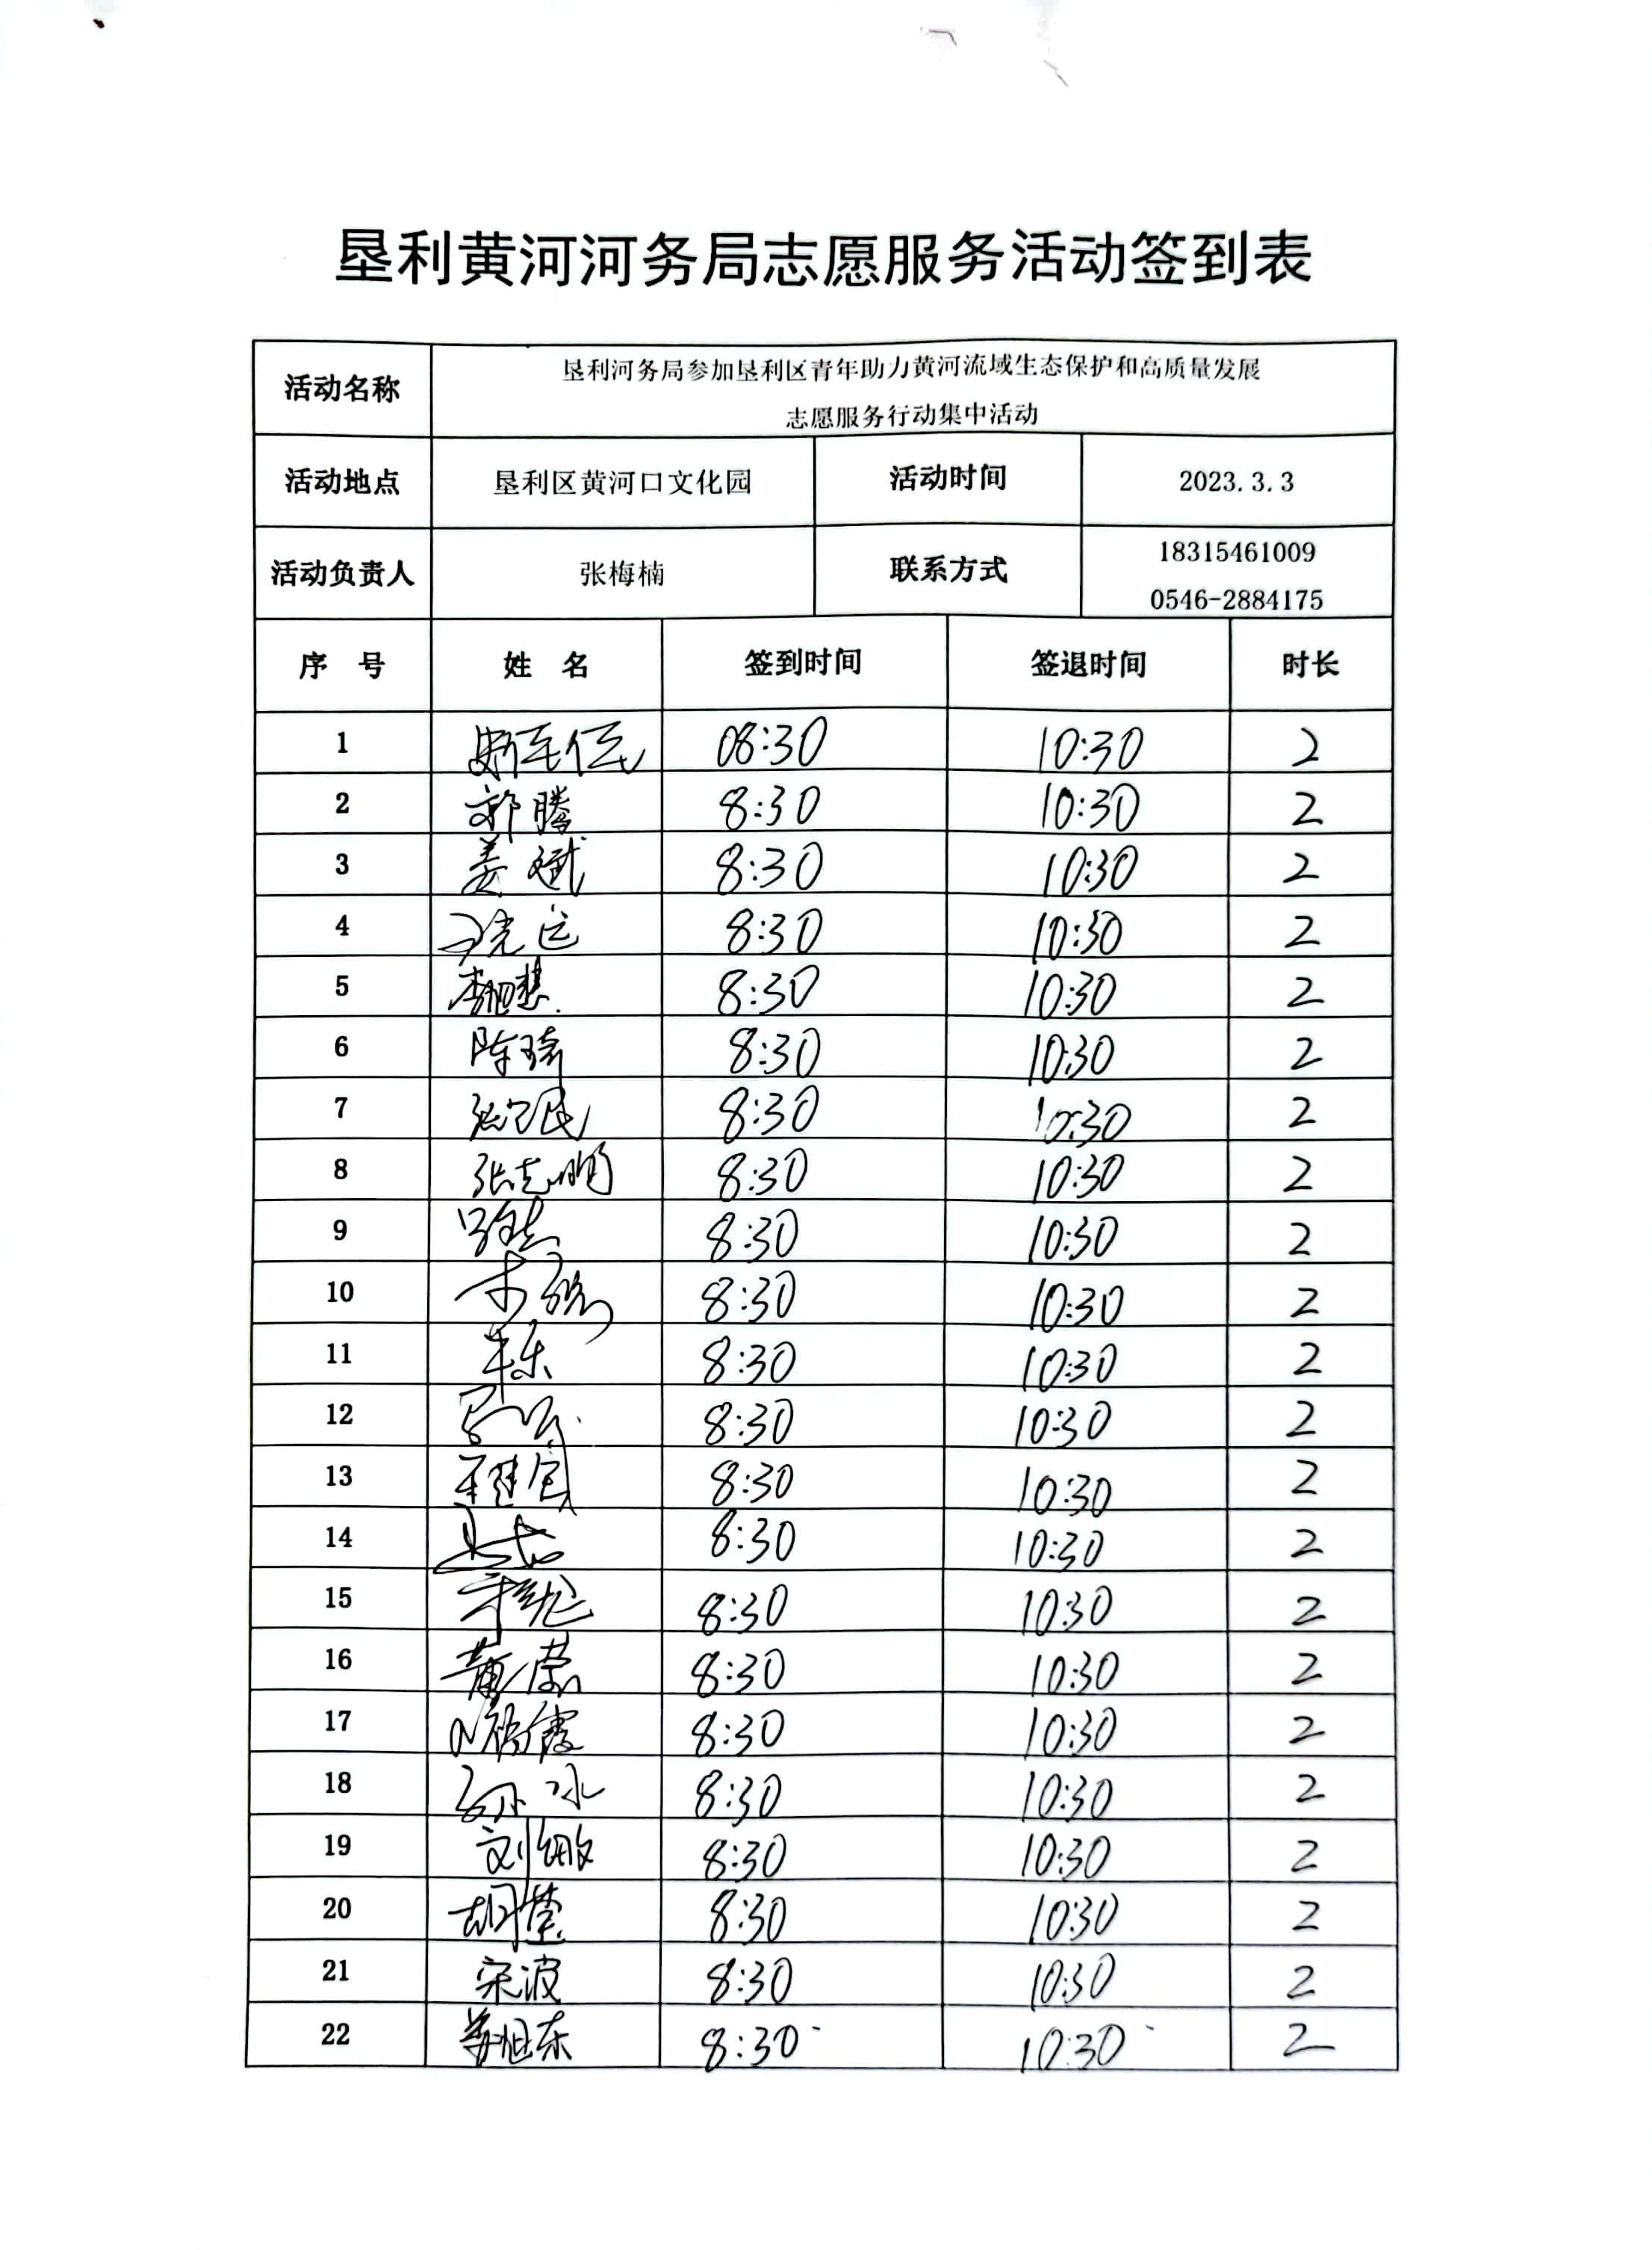 垦利黄河河务局志愿服务活动签到表
活动名称 垦利河务局参加垦利区青年助力黄河流域生态保护和高质量发展
志愿服务行动集中活动
活动地点 垦利区黄河口文化园 活动时间 2023.3.3
活动负责人 张梅楠 联系方式 18315461009
0546-2884175
序 号 姓 名 签到时间 签退时间 时长
1 08:30 10:30 2
2 郭腾 8:30 10:30 2
3 姜斌 8:30 10:30 2
4 8:30 10:30 2
5 8:30 10:30 2
6 陈琦 8:30 10:30 2
7 8:30 10:30 2
8 张志鹏 8:30 10:30 2
9 8:30 10:30 2
10 8:30 10:30 2
11 8:30 10:30 2
12 8:30 10:30 2
13 8:30 10:30 2
14 8:30 10:30 2
15 8:30 10:30 2
16 8:30 10:30 2
17 8:30 10:30 2
18 孙冰 8:30 10:30 2
19 刘敏 8:30 10:30 2
20 胡莹 8:30 10:30 2
21 宋波 8:30 10:30 2
22 8:30 10:30 2